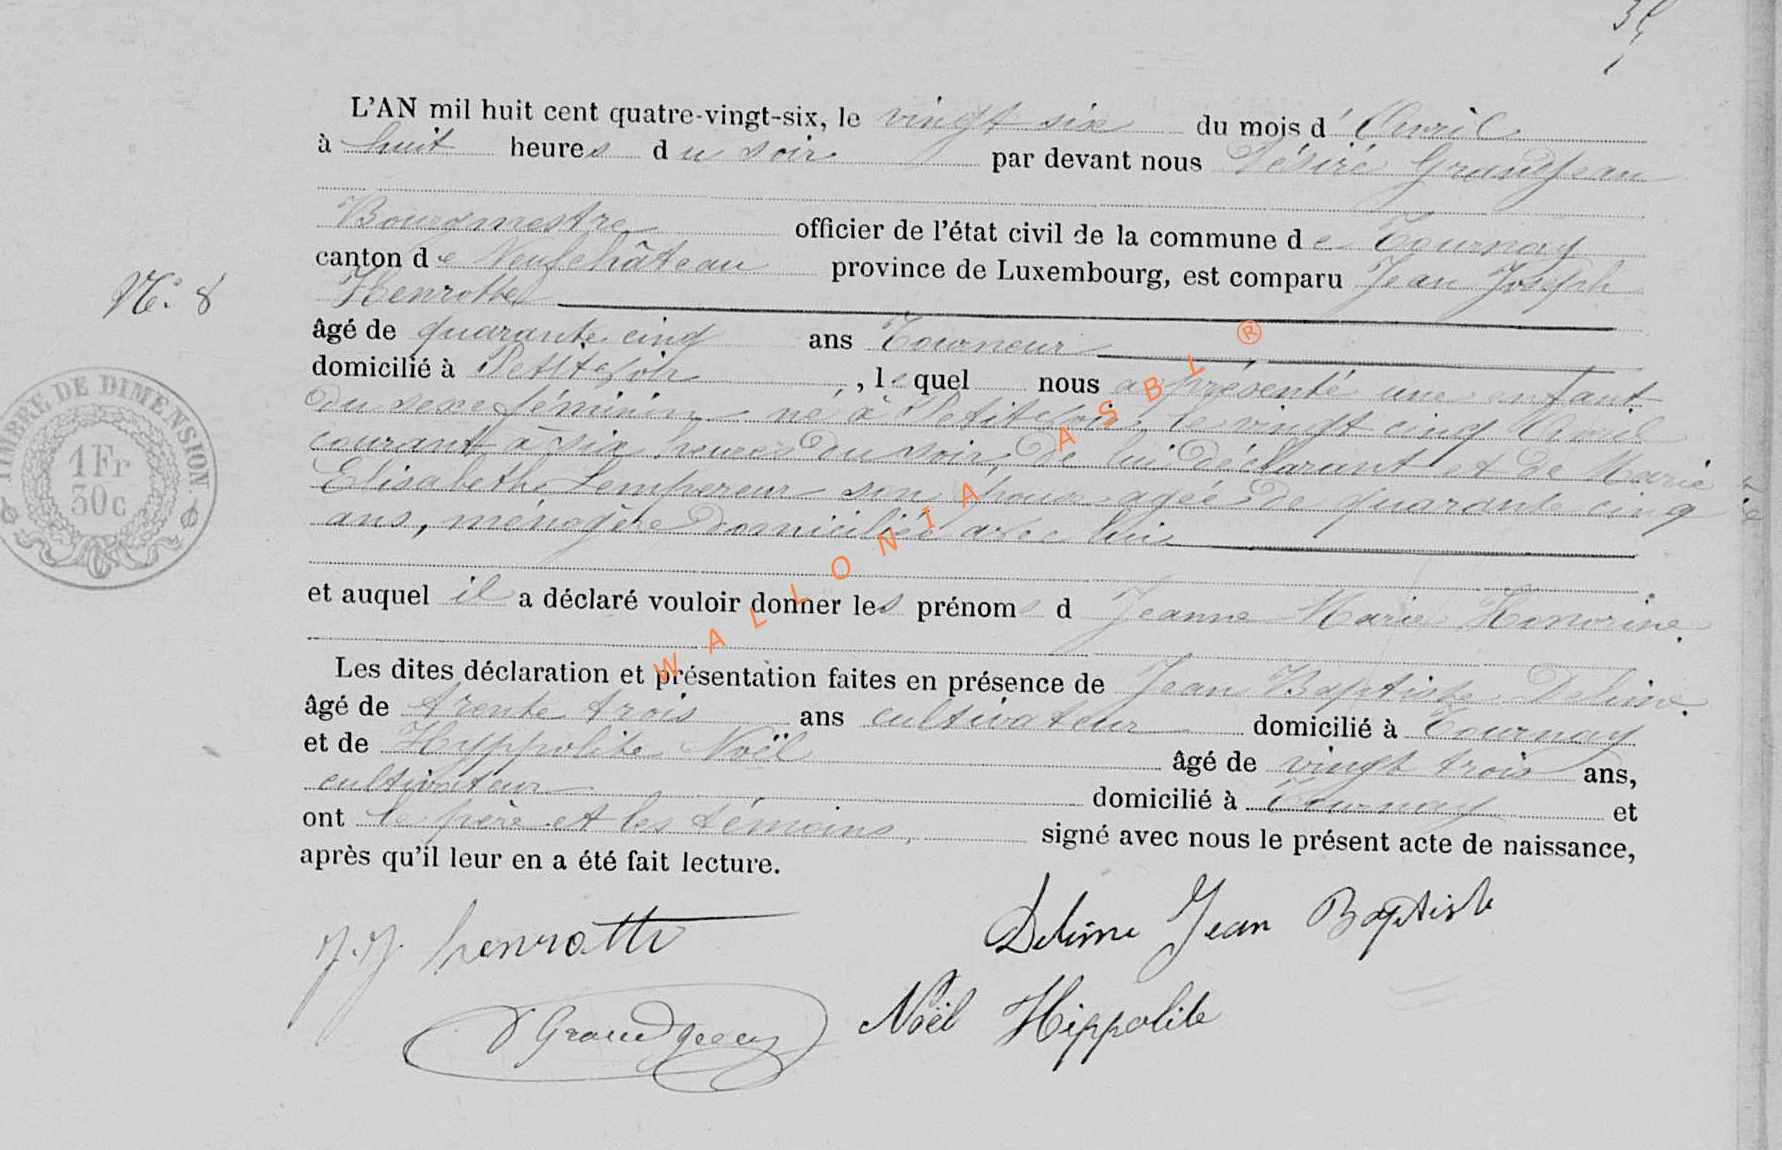 35
L'AN mil huit cent quatre-vingt-six, le vingt six du mois d' Avril
à huit heures du soir par devant nous Désiré Grandjean
Bourgmestre officier de l'état civil de la commune de Tournay
canton de Neufchâteau province de Luxembourg, est comparu Jean Joseph
N.º 8
Henrotte
âgé de quarante cinq ans Tourneur
domicilié à Petitvoir, lequel nous a présenté une enfant
du sexe féminin né à Petitvoir, le vingt cinq Avril
courant à six heures du soir, de lui déclarant et de Marie
Elisabeth Lempereur son épouse agée de quarante cinq
ans, ménagère domiciliée avec lui
et auquel il a déclaré vouloir donner les prénoms d Jeanne Marie Honorine.
Les dites déclaration et présentation faites en présence de Jean Baptiste Delime.
âgé de trente trois ans cultivateur domicilié à Tournay
et de Hyppolite Noël âgé de vingt trois ans,
cultivateur domicilié à Tournay et
ont le père et les témoins, signé avec nous le présent acte de naissance,
après qu'il leur en a été fait lecture.
J.J. henrotte
Delime Jean Baptiste
D Grandjean
Noël Hippolite
TIMBRE DE DIMENSION.
1Fr
50c
WALLONIA ASBL ®